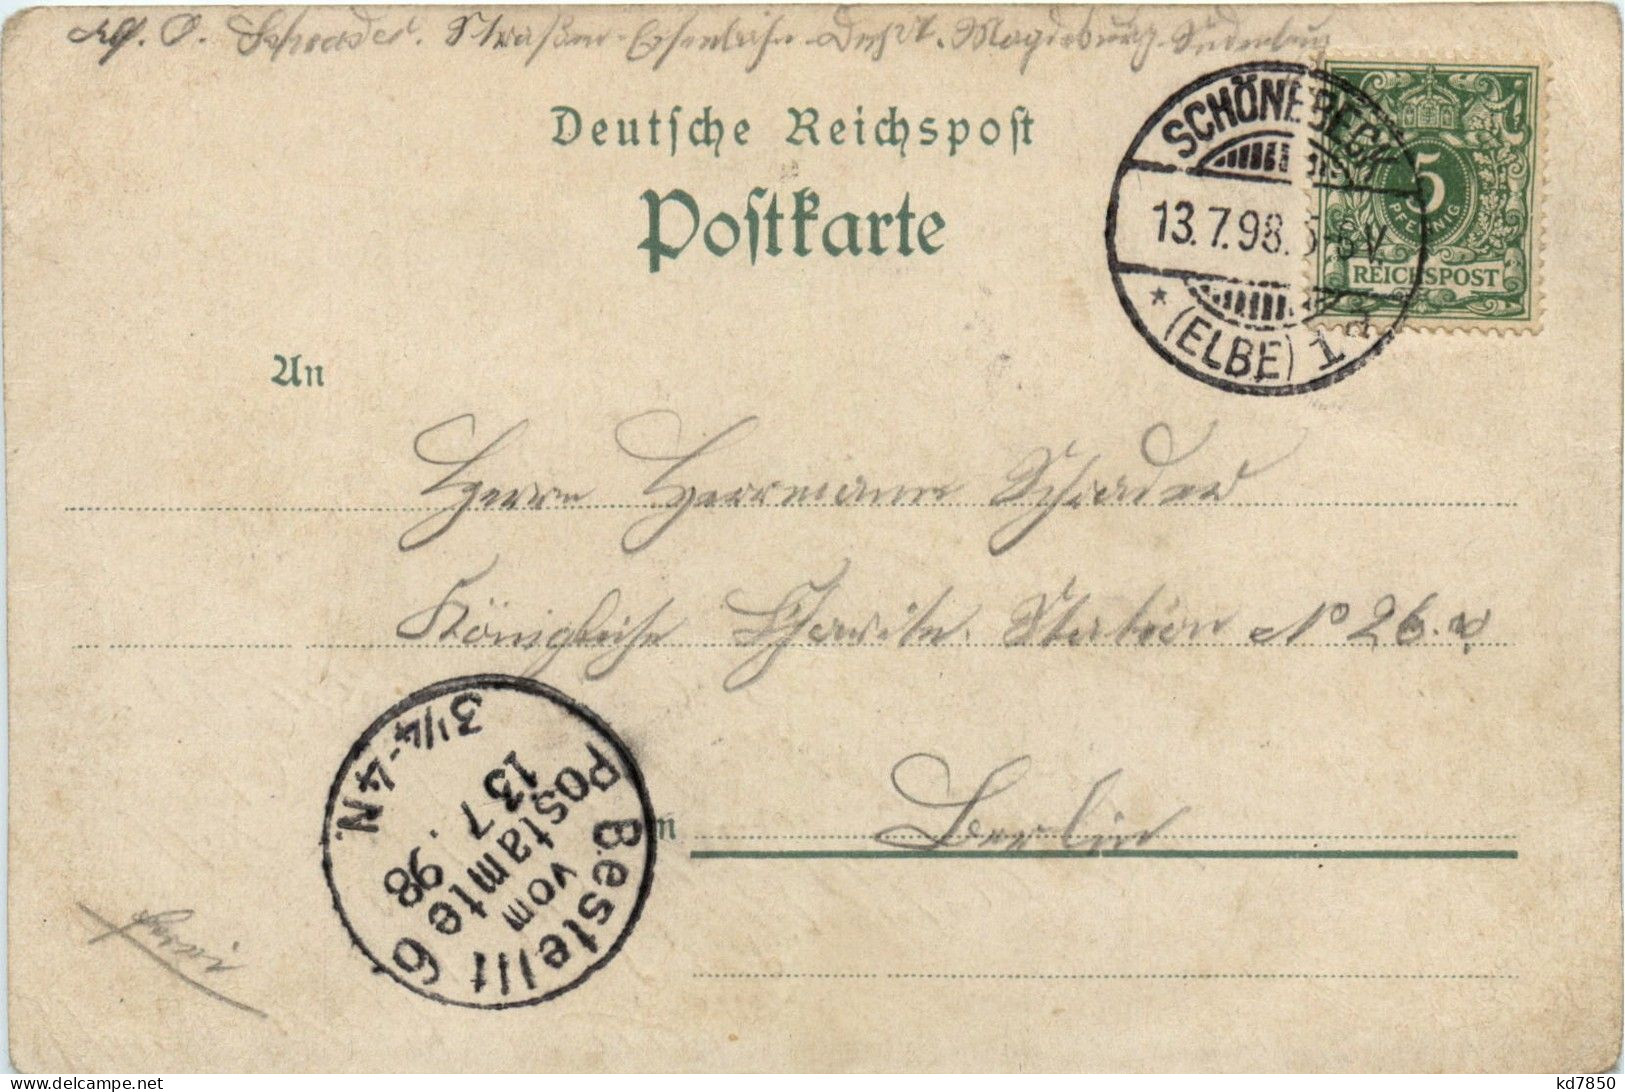 O. Schrader. Straßen-Eisenbahn-Depot. Magdeburg-Sudenburg
Deutsche Reichspost
Postkarte
SCHÖNEBECK
13.7.98. 5-6V.
(ELBE) 1 a
5
PFENNIG
REICHSPOST
An
Herrn Herrmann Schrader
Königliche Charite. Station No 26.
Berlin
Bestellt
vom
Postamte 6
13 7. 98
3 1/4-4N.
kd7850